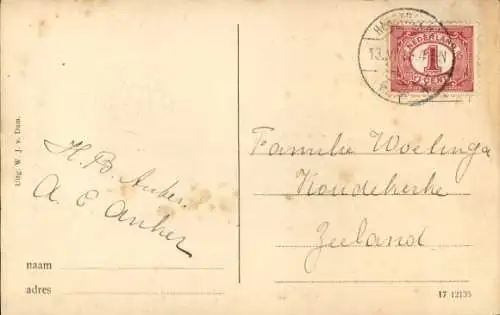 NEDERLAND
1
CENT
Uitg. W. J. v. Dam.
H. B. Anker.
A. E. Anker
Familie Woelinga
Koudekerke
Zeeland
naam
adres
17 12135